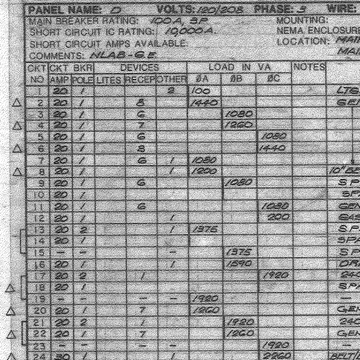 PANEL NAME: D VOLTS: 120/208 PHASE: 3 WIRE:
MAIN BREAKER RATING: 100A, 3P MOUNTING:
SHORT CIRCUIT IC RATING: 10,000A. NEMA ENCLOSURE
SHORT CIRCUIT AMPS AVAILABLE: LOCATION: MAI
COMMENTS: NLAB-G.E. MAI
CKT CKT BKR DEVICES LOAD IN VA NOTES
NO AMP POLE LITES RECEP OTHER ØA ØB ØC
20 1 2 100 LTG
2 20 1 8 1440 GEN
3 20 1 6 1080
4 20 1 7 1260
5 20 1 6 1080
6 20 1 8 1440
7 20 1 6 1 1080
8 20 1 1 1200
9 20 1 6 1080 SP
10 20 1 SP
11 20 1 6 1080 GEN
12 20 1 1 200
13 20 2 1 1375 SPA
14 20 1 SPA
15 - - - 1375 SP
16 20 1 1590
17 20 2 1 1920 240
18 20 1 SPA
19 - - - - 1920
20 20 1 7 1260 GEN
21 20 2 1 1920 240
22 20 1 7 1260 GEN
23 - - - - 1920
24 30 1 2260